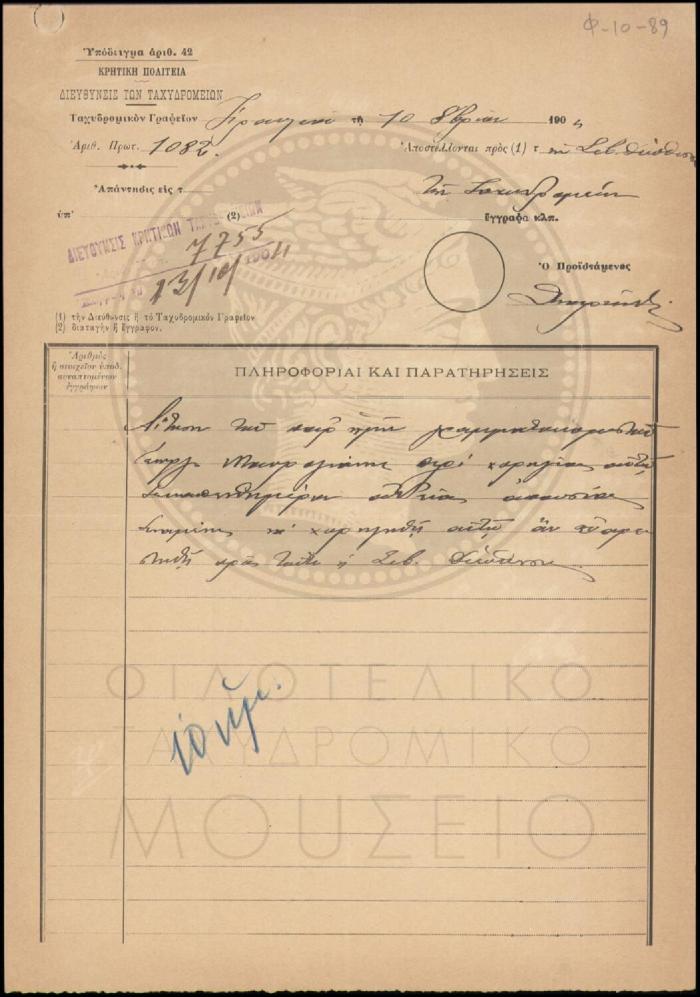 Φ-10-89
Ὑπόδειγμα ἀριθ. 42
ΚΡΗΤΙΚΗ ΠΟΛΙΤΕΙΑ
ΔΙΕΥΘΥΝΣΙΣ ΤΩΝ ΤΑΧΥΔΡΟΜΕΙΩΝ
Ταχυδρομικὸν Γραφεῖον τῇ 10 8βρίου 1904
Ἀριθ. Πρωτ. 1082
Ἀποστέλλονται πρὸς (1) τ ὴν Σεβ. Διεύθυνσιν
Ἀπάντησις εἰς τ
τῶν Ταχυδρομείων
ὑπ' (2)
ἔγγραφα κλπ.
ΔΙΕΥΘΥΝΣΙΣ ΚΡΗΤΙΚΩΝ ΤΑΧΥΔΡΟΜΕΙΩΝ
7755
13/10/1904
Ὁ Προϊστάμενος
(1) τὴν Διεύθυνσιν ἢ τὸ Ταχυδρομικὸν Γραφεῖον
(2) διαταγὴν ἢ ἔγγραφον.
Ἀριθμὸς
ἢ στοιχεῖον ὑποδ.
συναπτομένων
ἐγγράφων
ΠΛΗΡΟΦΟΡΙΑΙ ΚΑΙ ΠΑΡΑΤΗΡΗΣΕΙΣ
Αἴτησιν τοῦ παρ' ἡμῖν γραμματοκομιστοῦ
περὶ χορηγίας αὐτῷ
δεκαπενθημέρου ἀδείας ἀπουσίας
χορηγηθῇ αὐτῷ ἂν εὐαρε
στηθῇ πρὸς τοῦτο ἡ Σεβ. Διεύθυνσις
ΦΙΛΟΤΕΛΙΚΟ
ΤΑΧΥΔΡΟΜΙΚΟ
ΜΟΥΣΕΙΟ